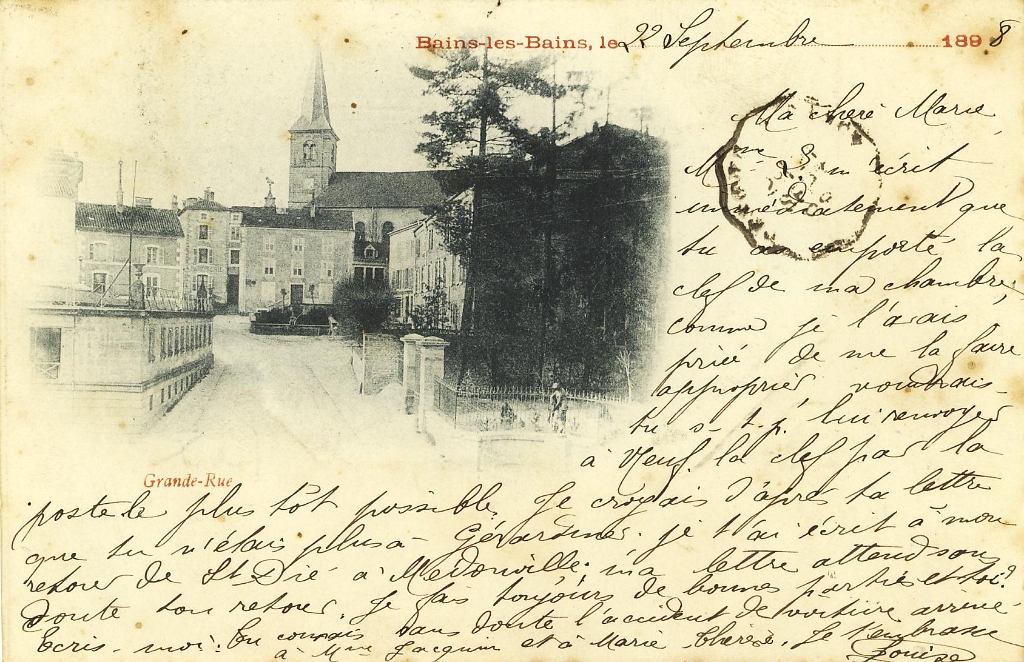 Bains-les-Bains, le 22 Septembre 1898
Ma chère Marie
écrit
immédiatement que
tu as emporté la
clef de ma chambre,
comme je l'avais
prié de me la faire
approprier, voudrais-
tu s. t. p. lui renvoyer
à Neuf. la clef par la
Grande-Rue
poste le plus tôt possible. Je croyais d'après ta lettre
que tu n'étais plus à Gérardmer. je t'ai écrit à mon
retour de St Dié à Médonville; ma lettre attend sans
doute ton retour. Je fais toujours de bonnes parties et toi?
Ecris-moi. Tu connais sans doute l'accident de voiture arrivé
à Mme Jacquin et à Marie Thérèse. Je t'embrasse
Louise